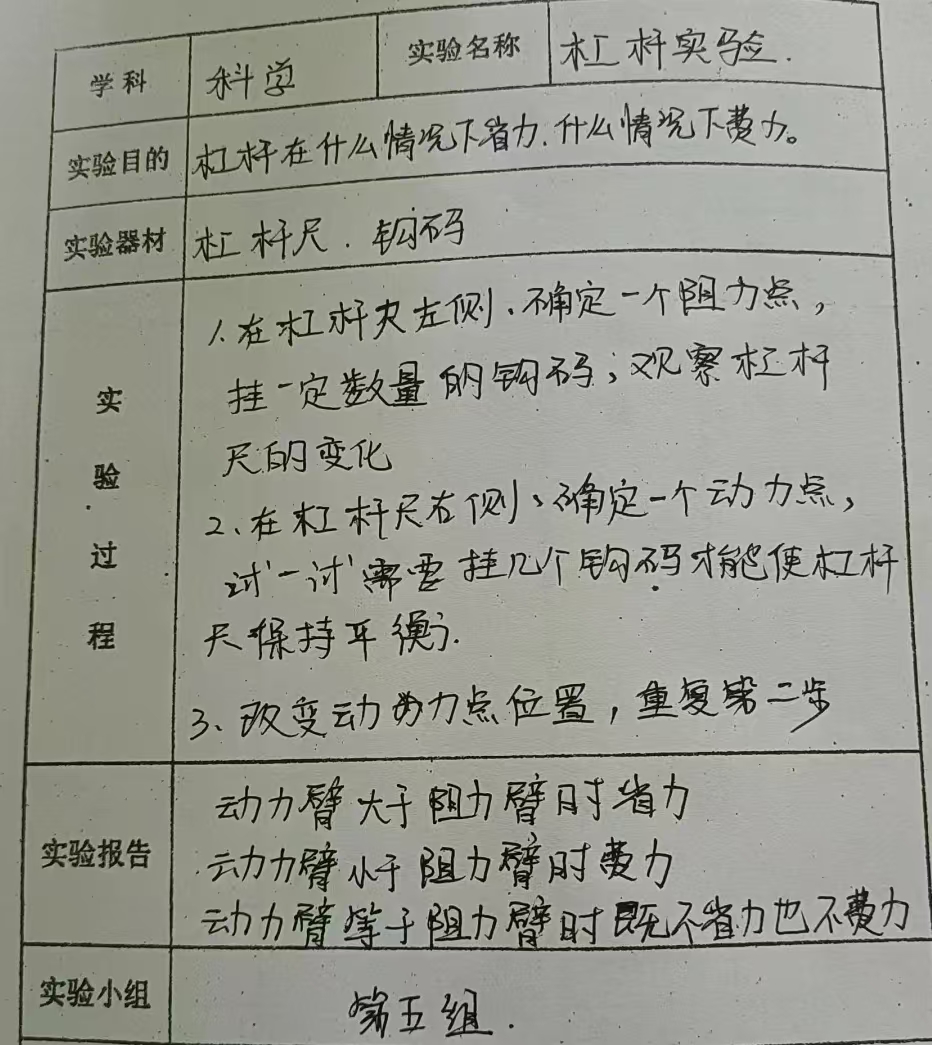 学科 科学 实验名称 杠杆实验.
实验目的 杠杆在什么情况下省力.什么情况下费力。
实验器材 杠杆尺.钩码
实验过程
1.在杠杆夹左侧、确定一个阻力点,
挂一定数量的钩码;观察杠杆
尺的变化
2、在杠杆尺右侧、确定一个动力点,
讨一讨需要挂几个钩码才能使杠杆
尺保持平衡.
3、改变动力点位置,重复第二步
实验报告
动力臂大于阻力臂时省力
动力臂小于阻力臂时费力
动力臂等于阻力臂时既不省力也不费力
实验小组 第五组.